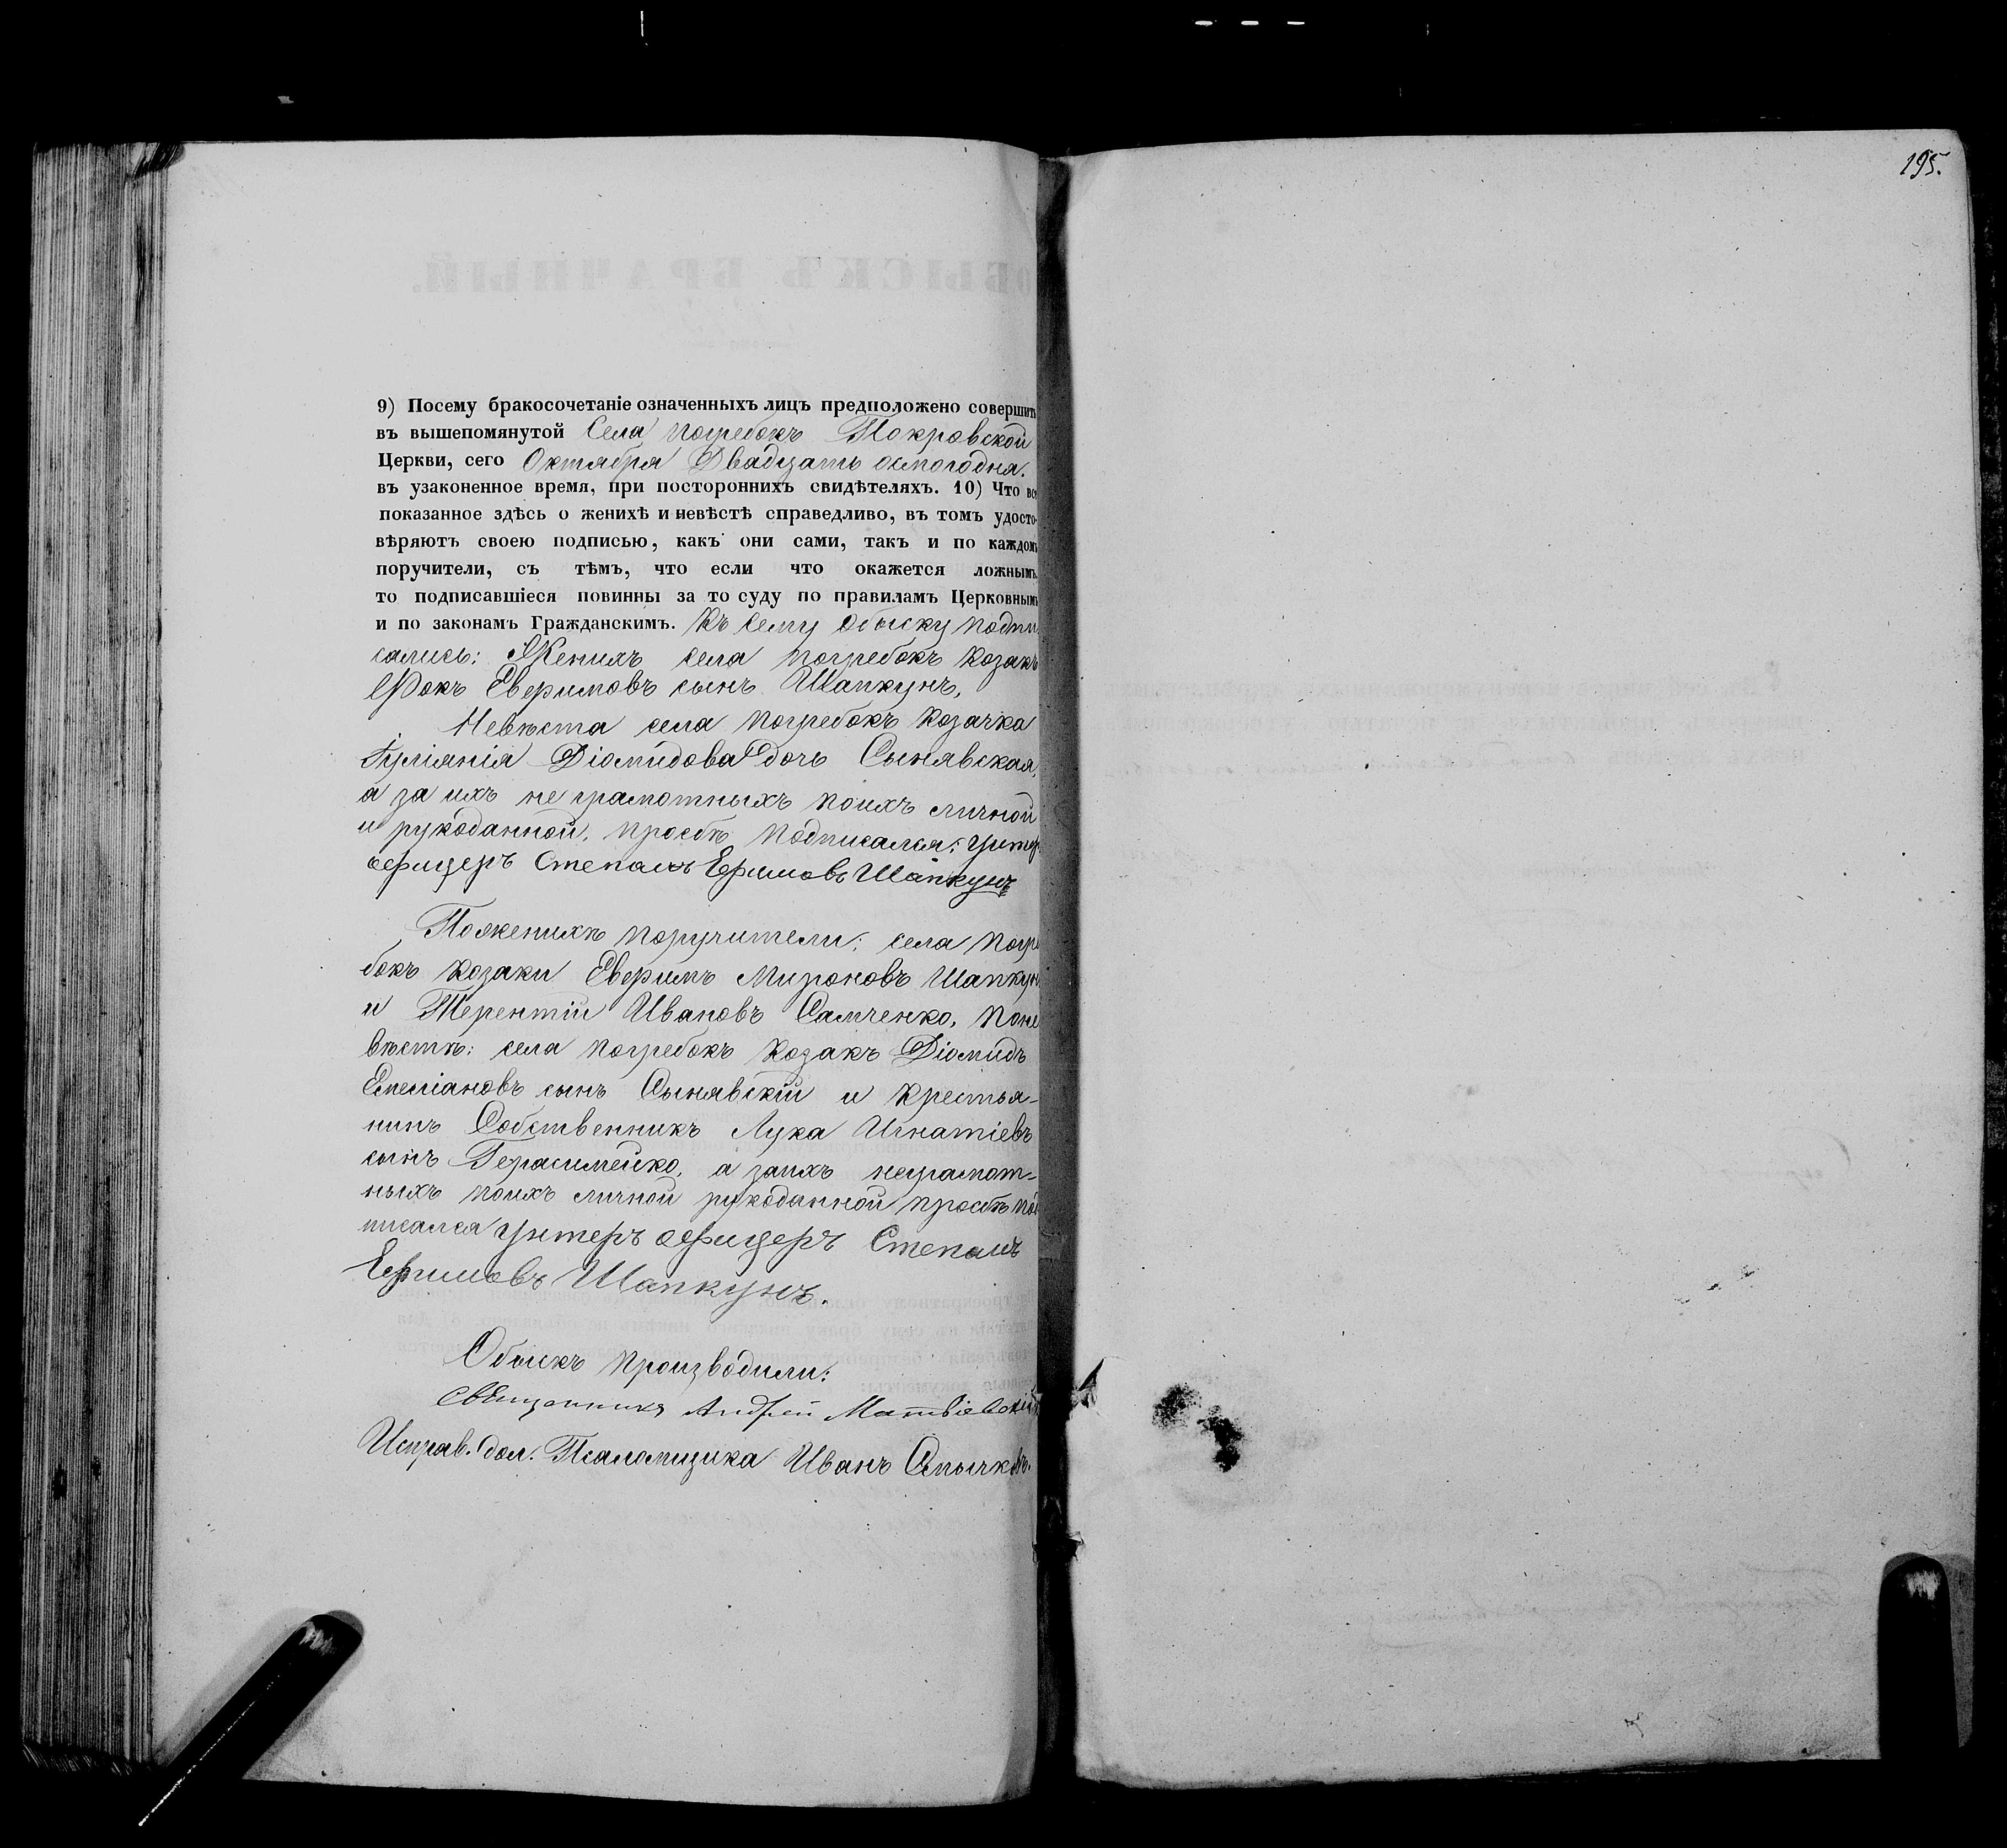 195.
9) Посему бракосочетаніе означенныхъ лицъ предположено совершить
въ вышепомянутой Села Погребокъ Покровской
Церкви, сего Октября Двадцать осмогодня.
въ узаконенное время, при постороннихъ свидѣтеляхъ. 10) Что все
показанное здѣсь о женихѣ и невѣстѣ справедливо, въ томъ удосто-
вѣряютъ своею подписью, какъ они сами, такъ и по каждомъ
поручители, съ тѣмъ, что если что окажется ложнымъ,
то подписавшіеся повинны за то суду по правиламъ Церковнымъ
и по законамъ Гражданскимъ. Къ сему обыску подпи
сались: Женихъ села Погребокъ козакъ
Фокъ Евфимовъ сынъ Шапкунъ,
Невѣста села Погребокъ козачка
Іуліанія Діомидова дочь Сынявская,
а за ихъ не грамотныхъ поихъ личной
и рукоданной, просбѣ подписался: унтер
офицеръ Степанъ Ефимовъ Шапкунъ
Пожених­ѣ поручители: села Погре
бокъ козаки Евфимъ Мироновъ Шапкун
и Терентій Ивановъ Самченко, Поне
вѣстѣ: села Погребокъ козакъ Діомидъ
Емеліановъ сынъ Сынявскій и крестья-
нинъ Собственникъ Лука Игнатіевъ
сынъ Герасимейко, а заихъ неграмот-
ныхъ поихъ личной рукоданной просбѣ под
писался унтеръ офицеръ Степанъ
Ефимовъ Шапкунъ.
Обыскъ производили:
Священникъ Андрей Матвіевскій
Исправ. дол. Псаломщика Иванъ